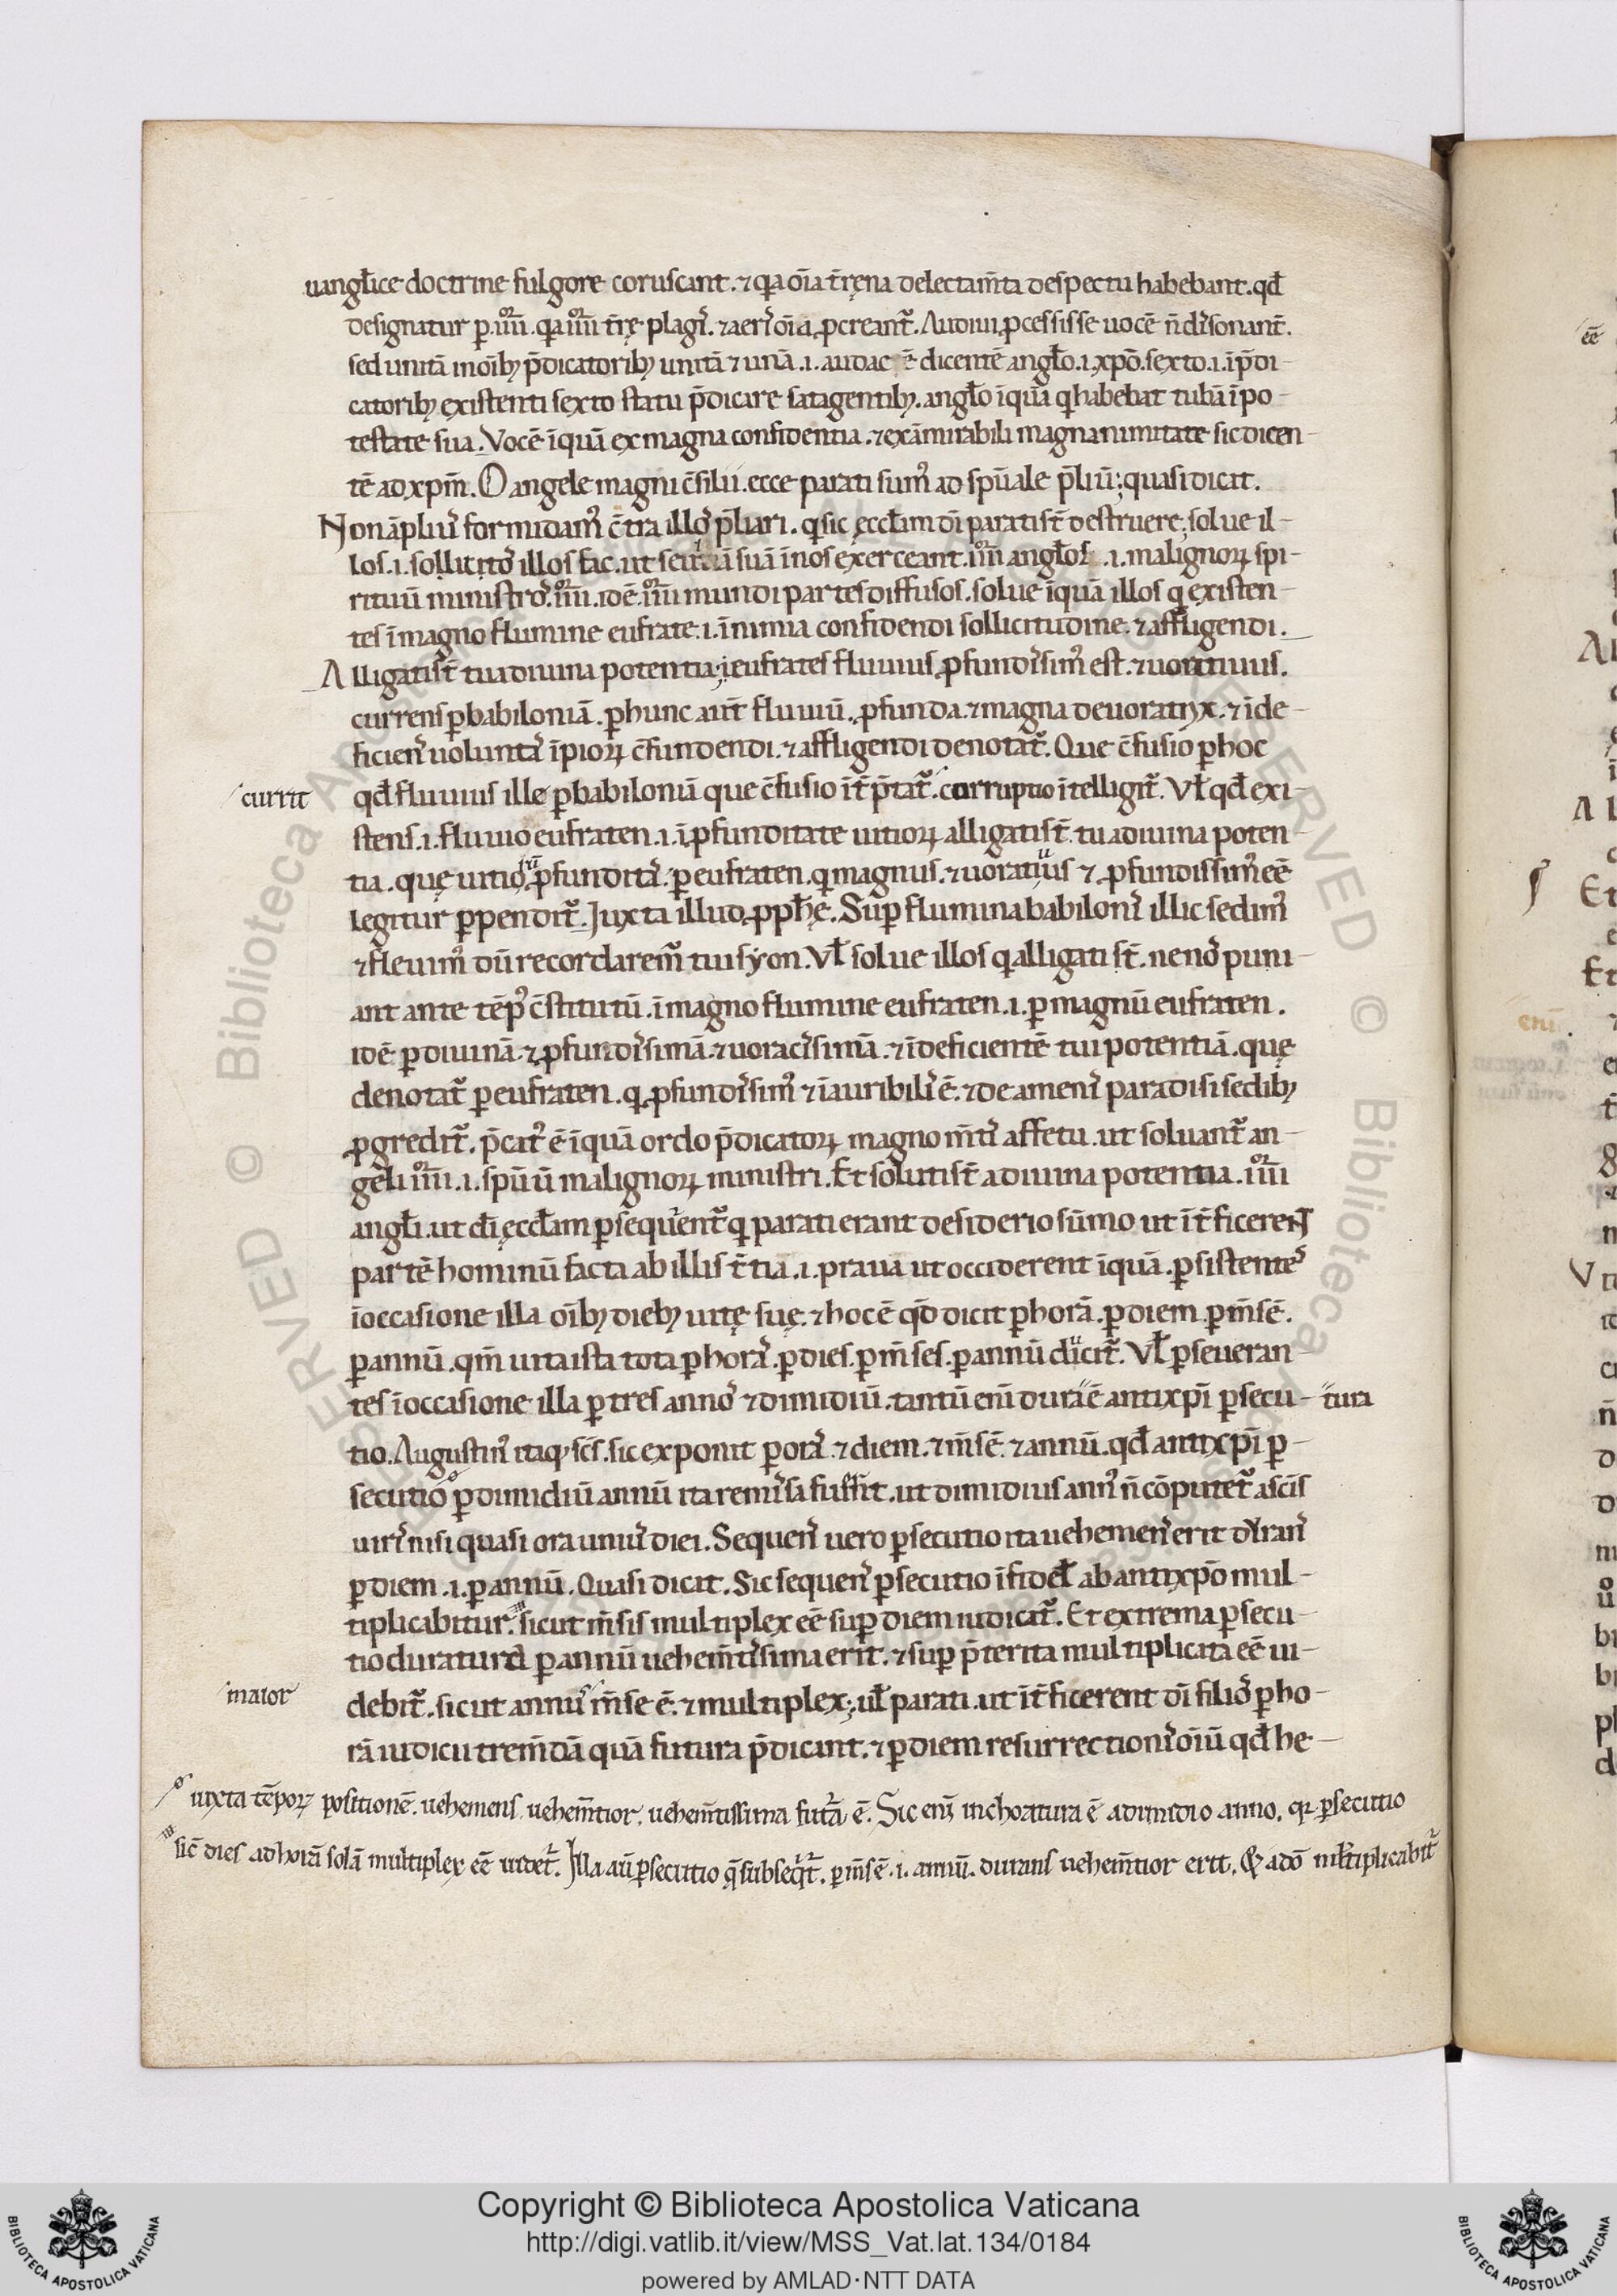 uangl̄ice doctrine fulgore coruscant. ⁊ qͣa oīa t̄rena delectam̄ta despectu habebant. qđ
designatur ꝑ .iiii. qͣa iiiior t̄rę plagis. ⁊ aeris oīa ꝓcreantᷣ. Audiui ꝓcessisse uocē n̄ disonant̄.
sed unitā in oīb; p̄dicatorib; unitā ⁊ unā .i. dicentē angl̄o .i. xp̄o. sexto .i. ī p̄di-
catorib; existenti sexto statu p̄dicare satagentib;. angl̄o īquā qͥ habebat tubā ī po-
testate sua. Vocē īquā ex magna confidentia. ⁊ ex āmirabili magnanimitate sic dicen-
tē ad xp̄m. O angele magni c̄silii. ecce parati sumꝰ ad sp̄uale p̄liū; quasi dicit.
Non āpliuꝰ formidamꝰ c̄tra illoꝰ p̄liari. qͥ sic ęccl̄am dī parati st̄ destruere; solue il-
los .i. sollicitoꝰ illos fac. ut suā ī nos exerceant .iiii angl̄os .i. malignoꝝ spi-
rituū ministroꝰ .iiii. idē .iiii mundi partes diffusos. solue īquā illos qͥ existen-
tes ī magno flumine eufrate .i. ī nimia confidendi sollicitudine. ⁊ affligendi.
Alligati st̄ tua diuina potentia; eufrates fluuius ꝓfundisimꝰ est. ⁊ uoratiuus.
currens ꝑ babiloniā. ꝑ hunc aut̄ fluuiū. ꝓfunda. ⁊ magna deuoratrix. ⁊ īde-
ficiens uoluntas īpioꝝ c̄fundendi. ⁊ affligendi denotatᷣ. Que c̄fusio ꝑ hoc
currit
qđ fluuius ille ꝑ babiloniū que c̄fusio īt̄p̄tatᷣ. corruptio ītelligitᷣ. Vł qđ exi-
stens .i. fluuio eufraten .i. ī ꝓfunditate uitioꝝ alligati st̄ tua diuina poten-
tia. quę uitioꝝ ꝓfunditas. ꝑ eufraten. qͥ magnus. ⁊ uoratiuus ⁊ ꝓfundissimꝰ eē
legitur ꝑpenditᷣ. Juxta illud ꝓph̄ę. Suꝑ flumina babilonis illic sedimꝰ
⁊ fleuimꝰ dū recordaremᷣ tui syon. Vł solue illos qͥ alligati st̄. ne noꝰ puni-
ant ante tēpꝰ c̄stitutū. ī magno flumine eufraten .i. ꝑ magnū eufraten.
idē ꝑ diuinā. ⁊ ꝓfundisimā. ⁊ uoracisimā. ⁊ īdeficientē tui potentiā. quę
denotatᷣ ꝑ eufraten. qͥ ꝓfundisimꝰ ⁊ īauribilis ē. ⁊ de amenis paradisi sedib;
ꝓgreditᷣ. p̄catꝰ ē īquā ordo p̄dicatoꝝ magno m̄tis affetu. ut soluantᷣ an-
geli iiii .i. sp̄uū malignoꝝ ministri. Et soluti st̄ a diuina potentia .iiii
angl̄i. ut dī ęccl̄am ꝑsequerentᷣ qͥ parati erant desiderio sūmo ut īt̄ficerent
partē hominū facta ab illis t̄tia .i. praua ut occiderent īquā. ꝑsistentes
ī occasione illa oīb; dieb; uitę suę. ⁊ hoc ē qđ dicit ꝑ horā. ꝑ diem. ꝑ m̄sē.
ꝑ annū. qm̄ uita ista tota ꝑ horas. ꝑ dies. ꝑ m̄ses. ꝑ annū ducitᷣ. Vł ꝑseueran-
tes ī occasione illa ꝑ tres annos ⁊ dimidiū. tantū eni duratura ē antixp̄i ꝑsecu-
tura
tio. Augustinꝰ itaq; sc̄s. sic exponit ꝑ orā. ⁊ diem. ⁊ m̄sē. ⁊ annū. qđ antixp̄i ꝑ-
secutio ꝑ dimidiū annū ita remisa fuerit. ut dimidius annꝰ n̄ cōputetᷣ a sc̄is
uiris nisi quasi ora unius diei. Sequens uero ꝑsecutio ita uehemens erit durans
ꝑ diem .i. ꝑ annū. Quasi dicit. Sic sequens ꝑsecutio ab antixp̄o mul-
tiplicabitur. sicut m̄sis multiplex eē suꝑ diem iudicatᷣ. Et extrema ꝑsecu-
tio duratura ꝑ annū uehem̄tisima erit. ⁊ suꝑ p̄terita multiplicata eē ui-
maior
debitᷣ. sicut annus m̄se ē. ⁊ multiplex; uł parati. ut īt̄ficerent dī filios ꝑ ho-
rā iudicii trem̄dā quā futura p̄dicant. ⁊ ꝑ diem resurrectionis oīū qđ he-
iuxta tēpoꝝ positionē. uehemens. uehem̄tior. uehem̄tissima futura ē. Sic eni inchoatura ē a dimidio anno. ꝑsecutio
sic̄ dies ad horā solā multiplex eē uidetᷣ. Illa aū ꝑsecutio q̄ subseqͥtᷣ. ꝑ m̄sē .i. annū. durans uehem̄tior erit. multiplicabitᷣ